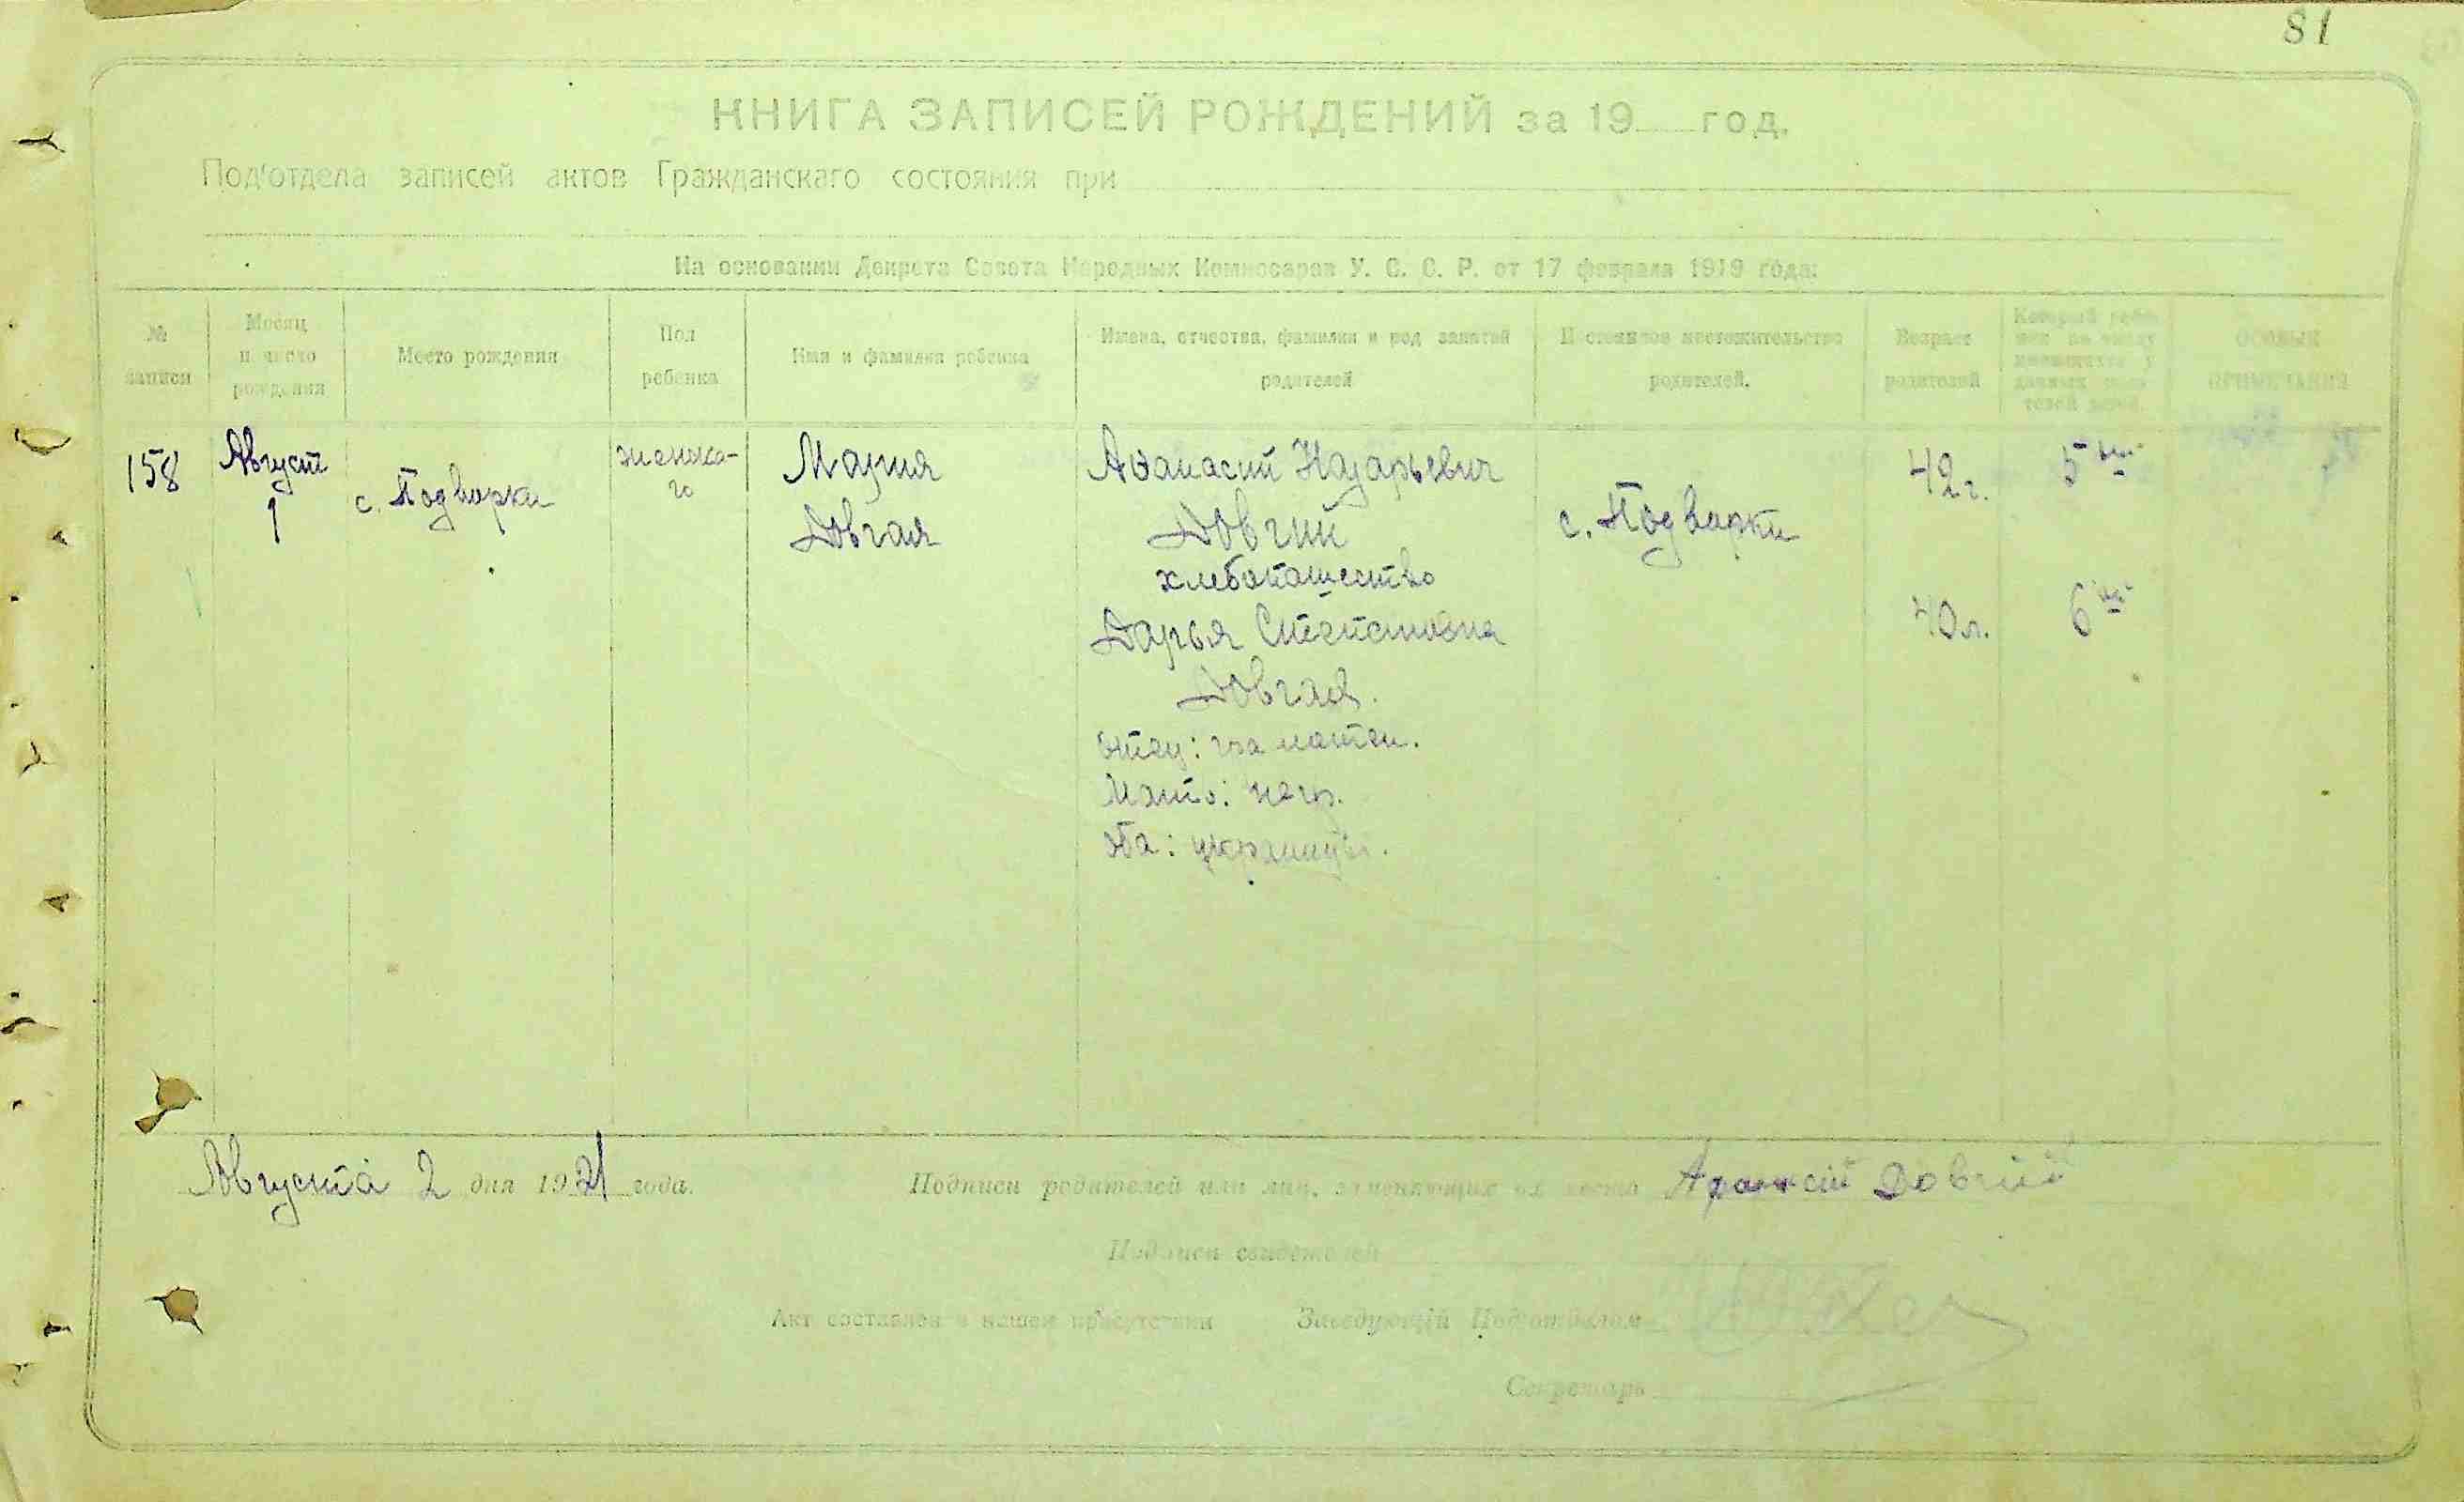 81
КНИГА ЗАПИСЕЙ РОЖДЕНИЙ за 19 год.
Под'отдела записей актов Гражданскаго состояния при
На основании Декрета Совета Народных Комиссаров У. С. С. Р. от 17 февраля 1919 года:
№ записи
Месяц и число рождения
Место рождения
Пол ребенка
Имя и фамилия ребенка
Имена, отчества, фамилии и род занятий родителей
Постоянное местожительство родителей.
Возраст родителей
Который ребенок по числу имеющихся у данных родителей детей.
ОСОБЫЯ ПРИМЕЧАНИЯ
158
Август
1
с. Подварки
женска-
го
Мария
Довгая
Афанасий Назарьевич
Довгий
хлебопашество
Дарья Степановна
Довгая.
отец:
Мать: негр.
Оба: украинцы.
с. Подварки
42 г.
40 л.
5ый
6ый
Августа 2 дня 1921 года.
Подписи родителей или лиц, заменяющих их место Довгий
Подписи свидетелей
Акт составлен в нашем присутствии Заведующій Подотделом
Секретарь